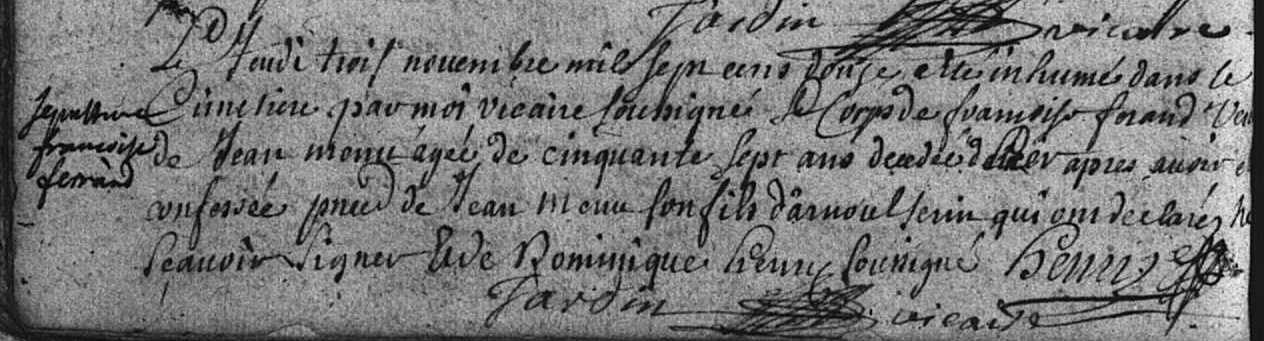 Jardin vicaire
Le Jeudi trois novembre mil sept cens douze a eté inhumé dans le
sepulture Cimetiere par moi vicaire soussigné le Corps de francoise ferand veu
francoise de Jean monu agée de cinquante sept ans decedée d'hier apres avoir
ferrand
confessée pnce de Jean monu son fils d'arnoul serin qui ont declarez ne
sçauoir signer Et de Dominique henry soussigné Henry
Jardin vicaire